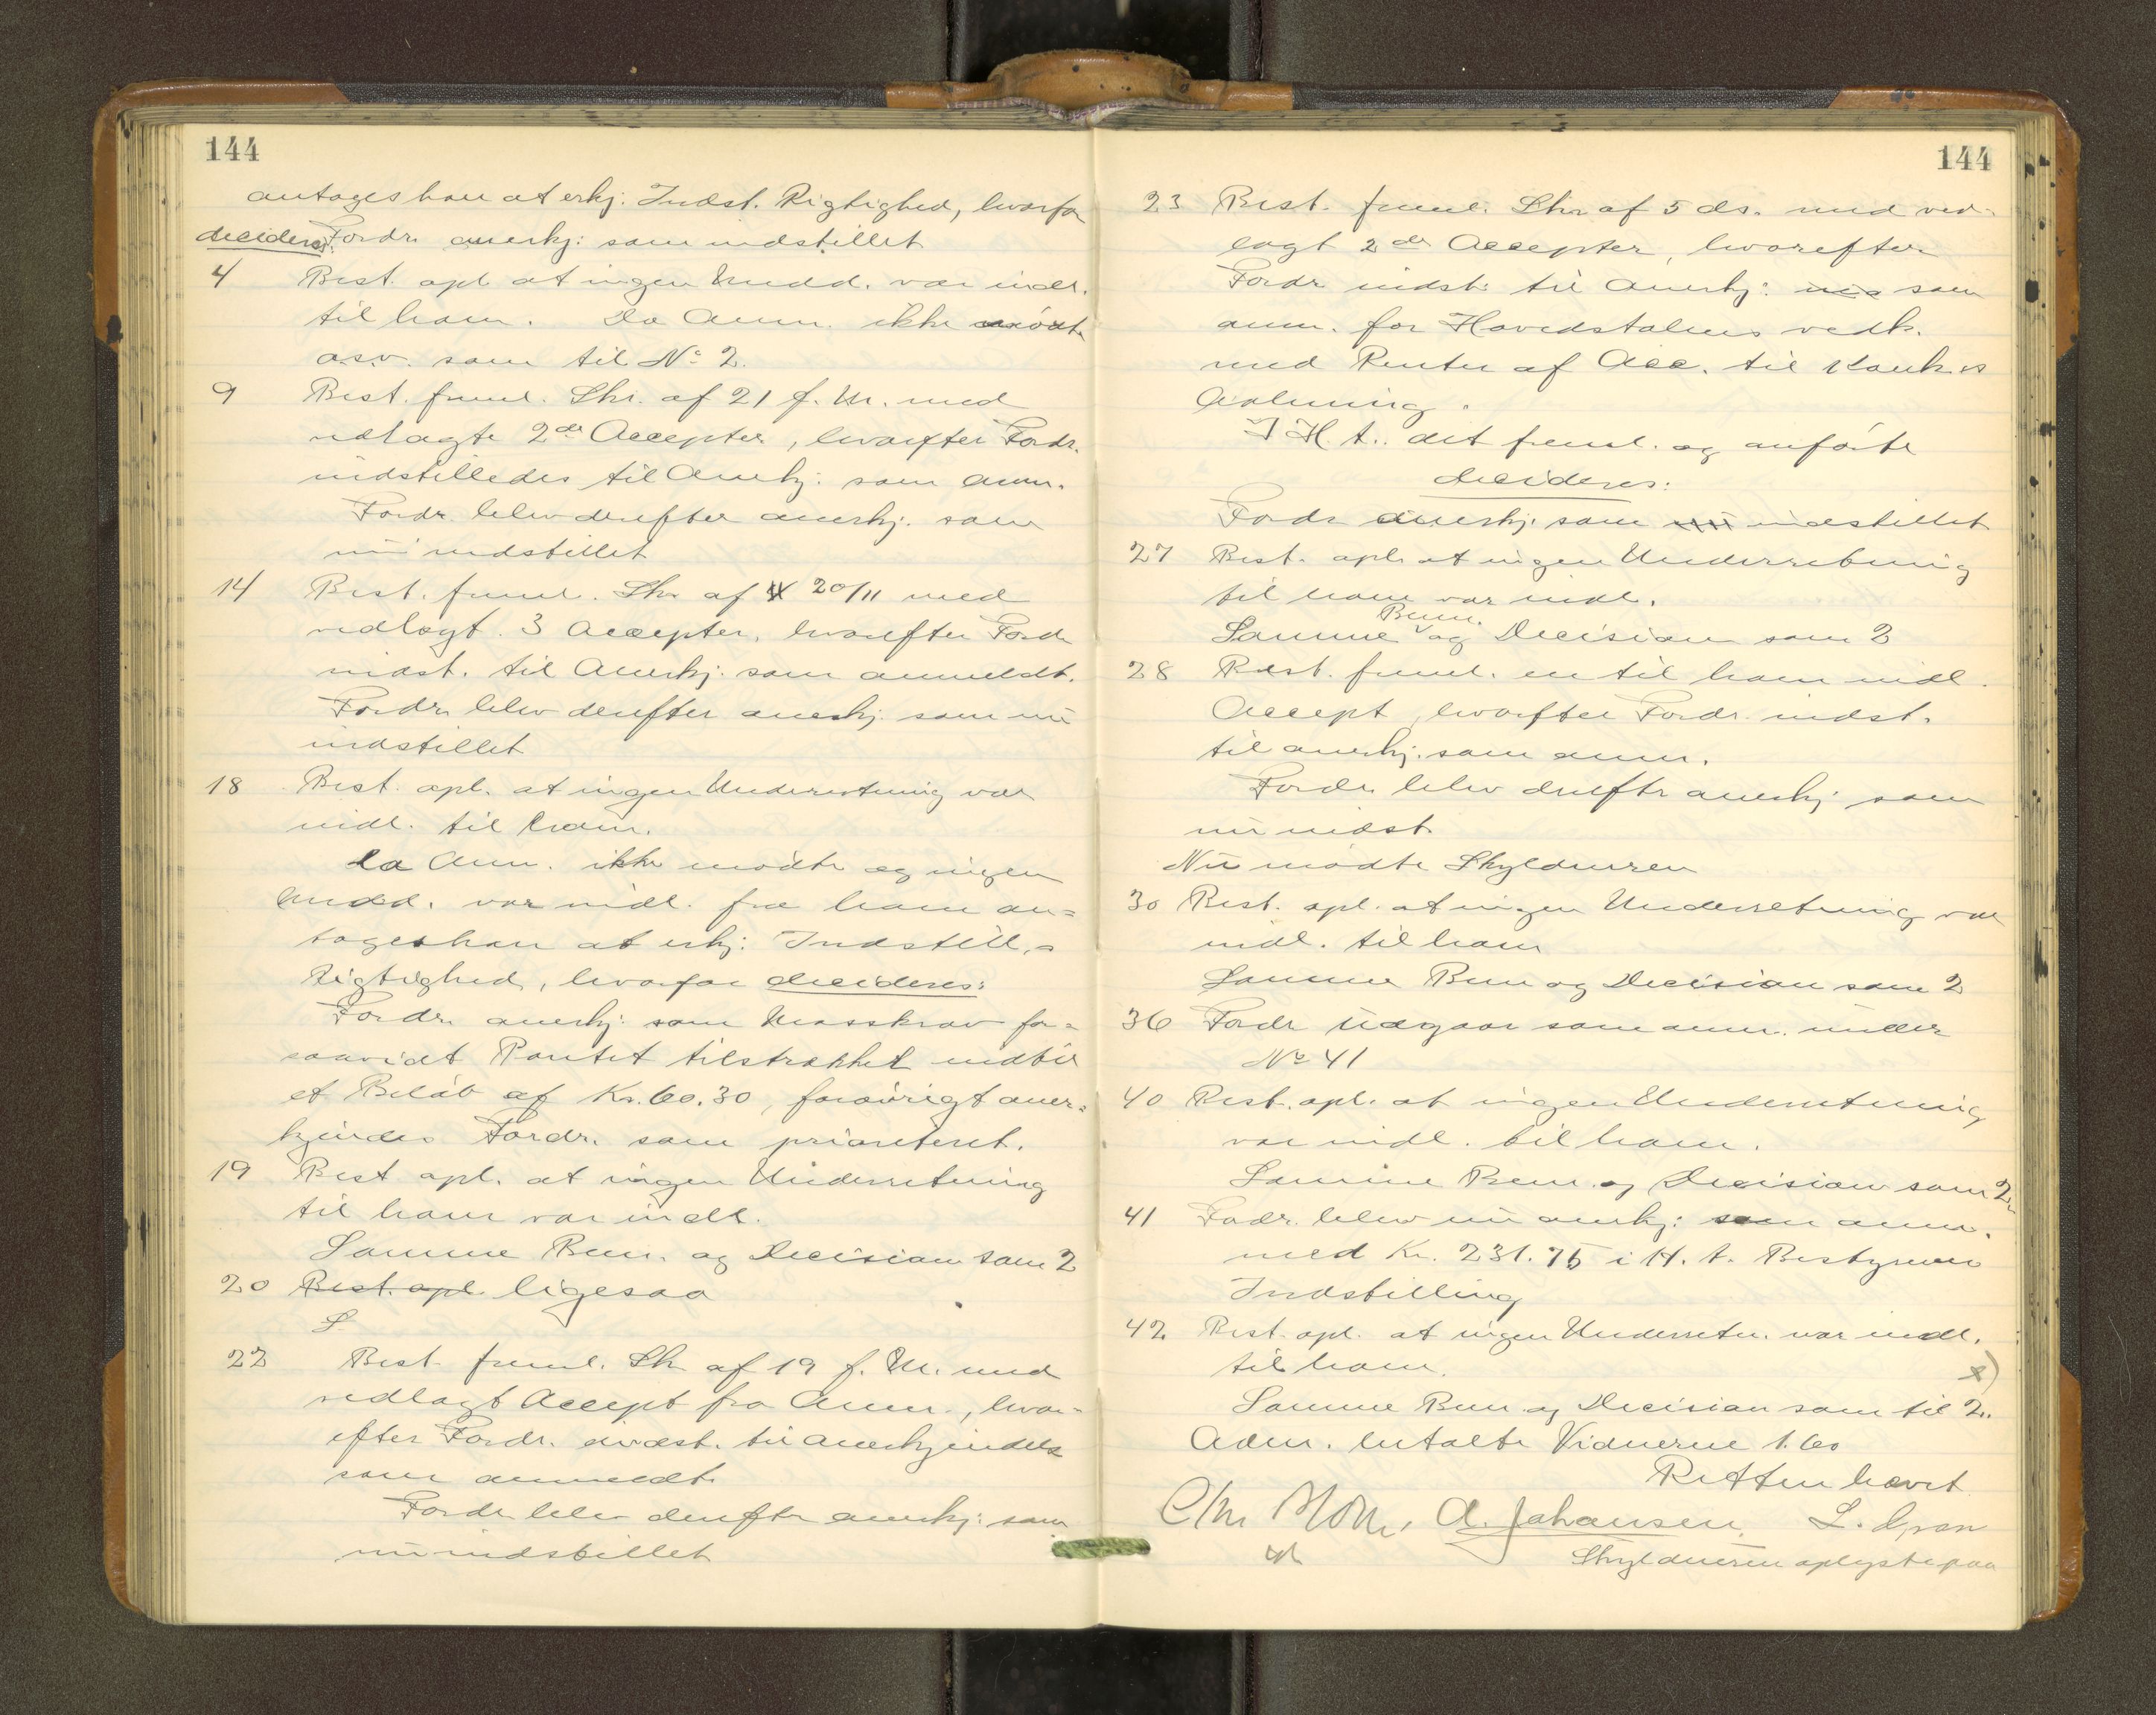 144
antages han at erkj. Indst. Rigtighed, hvorfor
decideres: Fordr. anerkj: som indstillet
4 Best. opl. at ingen Undd. var indl.
til ham. Da Anm. ikke mødte
o.s.v. som til No 2.
9 Best. freml. Skr. af 21 f. M. med
vedlagte 2de Accepter, hvorefter Fordr.
indstilledes til Anerkj. som anm.
Fordr. blev derefter anerkj. som
nu indstillet
14 Best. freml. Skr. af 20/11 med
vedlagt 3 Accepter, hvorefter Fordr
indst. til Anerkj. som anmeldt.
Fordr. blev derefter anerkj. som nu
indstillet
18 Best. opl. at ingen Underretning var
indl. til ham.
Da Anm. ikke mødte og ingen
Undd. var indl. fra ham an=
toges han at erkj: Indstill.s
Rigtighed, hvorfor decideres:
Fordr. anerkj. som Massekrav for=
saavidt Pantet tilstrækkel indtil
et Beløb af Kr. 60.30, forøvrigt aner=
kjendes Fordr. som prioriteret.
19 Best opl. at ingen Underretning
til ham var indl.
Samme Bem. og Decision som 2
20 Best. opl. ligesaa
S
22 Best. freml. Skr af 19 f. M. med
vedlagt Accept fra Anm., hvor=
efter Fordr. indst. til Anerkjendelse
som anmeldt.
Fordr blev derefter anerkj: som
nu indstillet
144
23 Best. freml. Skr af 5 ds. med ved=
lagt 2de Accepter, hvorefter
Fordr indst: til Anerkj: som
anm. for Hovedstolens vedk.
med Renter af Acc. til Konk.s
Aabning.
I H. t. det freml. og anførte
decideres:
Fordr anerkj. som nu indstillet
27 Best. opl. at ingen Underretning
til ham var indl.
Samme Bem. og Decision som 2
28 Best. freml. en til ham indl.
Accept, hvorefter Fordr. indst.
til anerkj. som anm.
Fordr. blev derefter anerkj. som
nu indst.
Nu mødte Skyldneren
30 Best. opl. at ingen Underretning var
indl. til ham
Samme Bem og Decision som 2
36 Fordr udgaar som anm. under
No 41
40 Best. opl. at ingen Underretning
var indl. til ham.
Samme Bem. og Decision som 2
41 Fordr. blev nu anerkj: som anm.
med Kr. 231.75 i H. t. Bestyrerens
Indstilling
42 Best. opl. at ingen Underretn. var indl.
til ham. x)
Samme Bem og Decision som til 2.
Adm. betalte Vidnerne 1.60
Retten hævet
A. Johansen. L.
Skyldneren oplyste paa